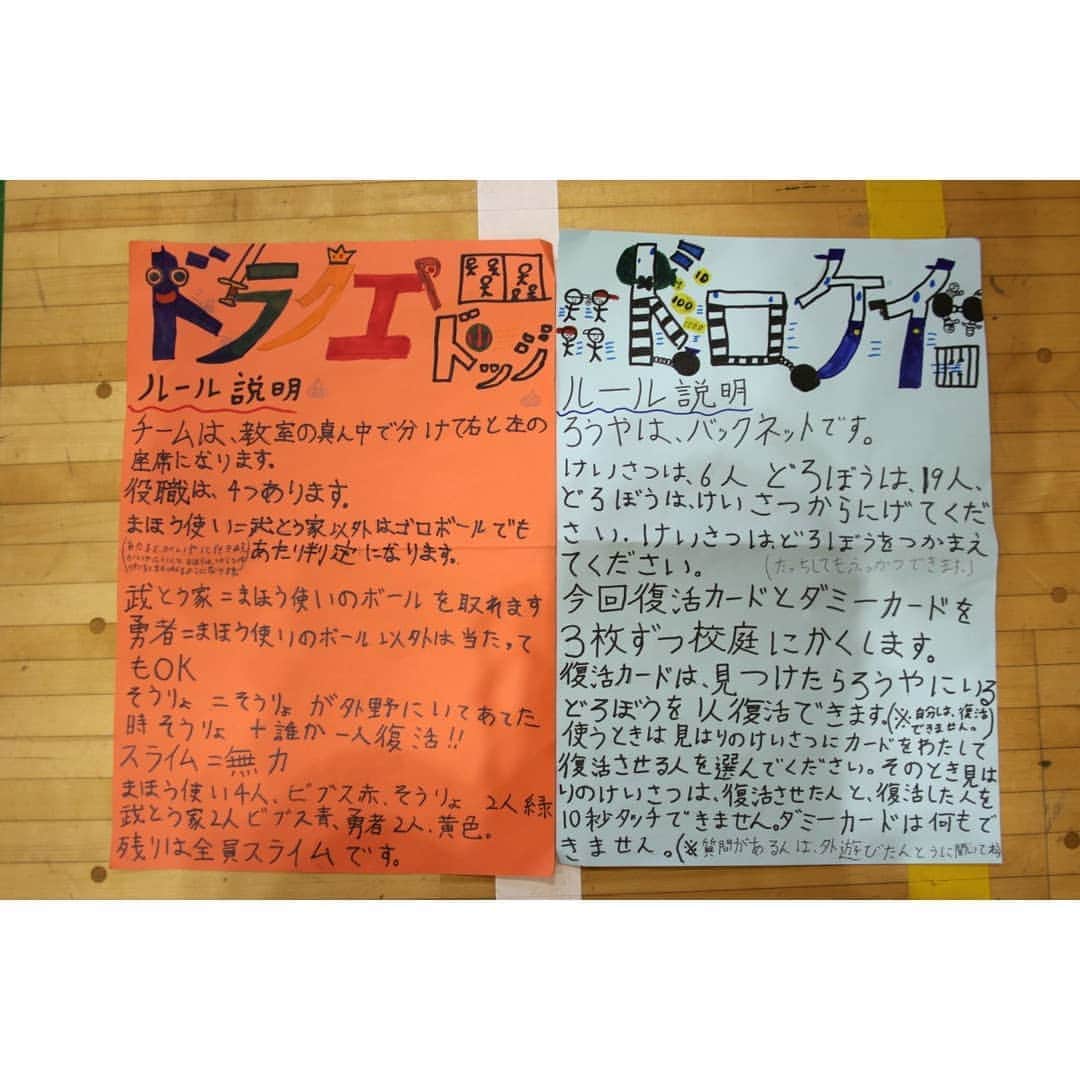 ドラクエ
ドッジ
ルール説明
チームは、教室の真ん中で分けて右と左の
座席になります。
役職は、4つあります。
まほう使い=武とう家以外はゴロボールでも
あたり判定になります。
武とう家=まほう使いのボールを取れます
勇者=まほう使いのボール以外は当たって
もOK
そうりょ=そうりょが外野にいてあてた
時そうりょ+誰か一人復活!!
スライム=無力
まほう使い4人、ビブス赤、そうりょ 2人緑
武とう家2人ビブス青、勇者2人、黄色。
残りは全員スライムです。
ドロケイ
10
100
ルール説明
ろうやは、バックネットです。
けいさつは、6人 どろぼうは、19人、
どろぼうは、けいさつからにげてくだ
さい。けいさつは、どろぼうをつかまえ
てください。(たっちしてもふっかつできます。)
今回復活カードとダミーカードを
3枚ずつ校庭にかくします。
復活カードは、見つけたらろうやにいる
どろぼうを1人復活できます。(※自分は、復活できません。)
使うときは見はりのけいさつにカードをわたして
復活させる人を選んでください。そのとき見は
りのけいさつは、復活させた人と、復活した人を
10秒タッチできません。ダミーカードは何もで
きません。(※質問がある人は、外遊びたんとうに聞いて